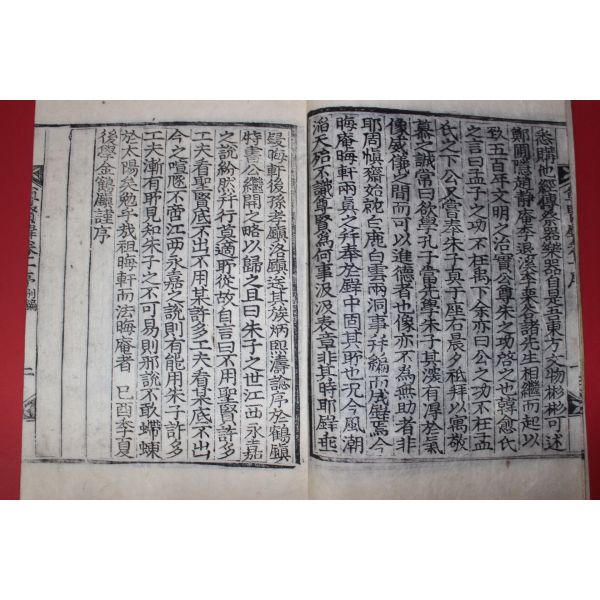 悉購他經傳祭器樂器自是吾東方文物彬彬可述
鄭圃隱趙靜庵李退溪李栗谷諸先生相繼而起以
致五百年文明之治實公尊朱之功啓之也韓愈氏
之言曰孟子之功不在禹下余亦曰公之功不在孟
氏之下公又嘗奉朱子眞于座右晨夕祗拜以寓敬
慕之誠常曰欲學孔子當先學朱子其深有得於氣
像威儀之間而可以進德者也像亦不為無助者非
耶周愼齋始啟白鹿白雲兩洞事并編而成牒焉今
晦庵晦軒兩眞必并奉於牒中固其所也況今風潮
滔天殆不識尊賢為何事汲汲表章非其時耶牒垂
晦軒後孫孝顧洛顧送其族炳熙濤誌序於鶴顧
特書公繼開之略以歸之且曰朱子之世江西永嘉
之說紛然幷行莫適所從故自言曰不用聖賢許多
工夫看聖賢底不出不用某許多工夫看某底不出
今之喧豗不啻江西永嘉之說則有能用朱子許多
工夫漸有所見知朱子之不可易則邪說不敢螮蝀
於太陽矣勉乎哉我祖晦軒而法晦庵者 己酉季夏
後學金鶴顧謹序
尊賢錄卷一序 別編 二